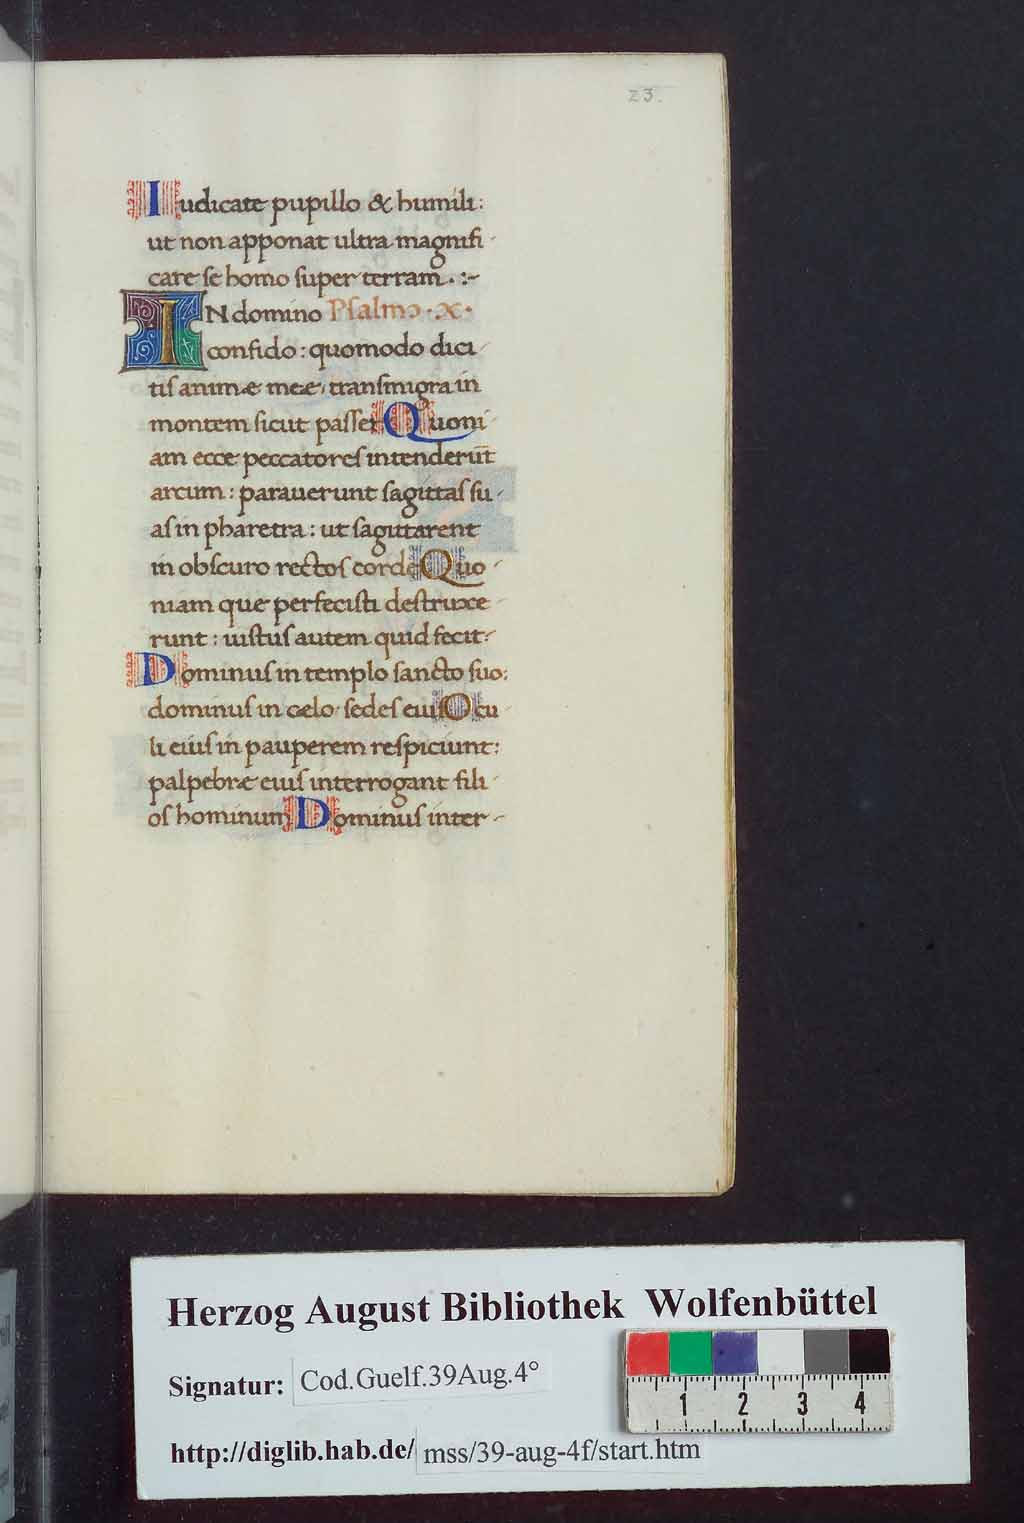 23.
Iudicate pupillo & humili:
ut non apponat ultra magnifi-
care se homo super terram.:~
IN domino Psalmo.x.
confido: quomodo dici-
tis animæ meæ, transmigra in
montem sicut passer Quoni-
am ecce peccatores intenderūt
arcum: parauerunt sagittas su-
as in pharetra: ut sagittarent
in obscuro rectos corde Quo-
niam que perfecisti destruxe-
runt: iustus autem quid fecit.
Dominus in templo sancto suo:
dominus in cælo sedes eius Ocu-
li eius in pauperem respiciunt:
palpebræ eius interrogant fili-
os hominum Dominus inter-
Herzog August Bibliothek Wolfenbüttel
Signatur: Cod.Guelf.39Aug.4°
1 2 3 4
http://diglib.hab.de/ mss/39-aug-4f/start.htm